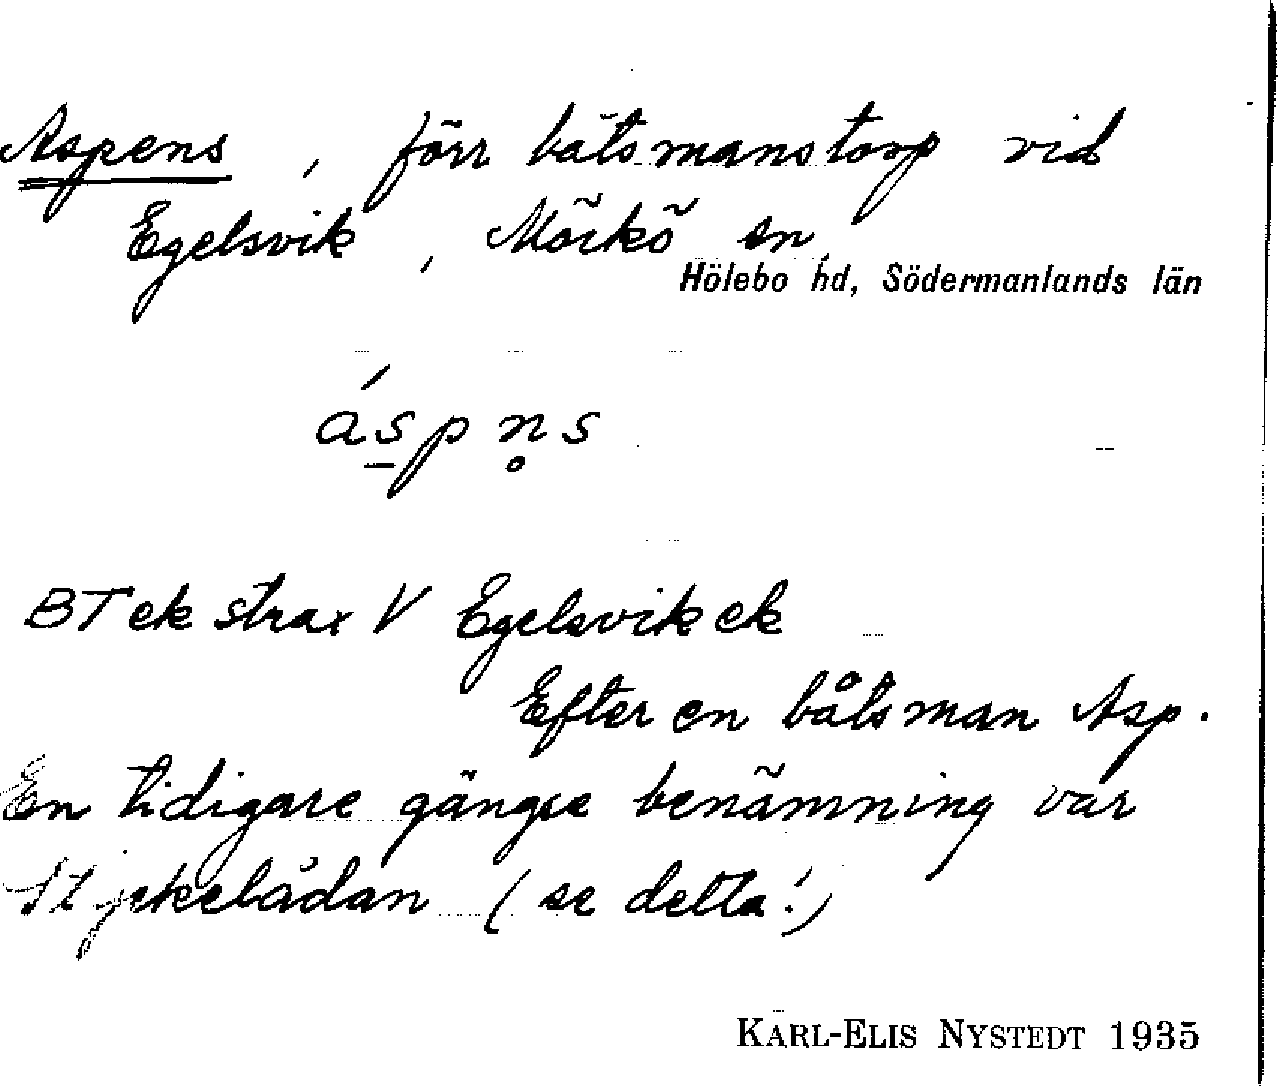 Aspens, förr båtsmanstorp vid
Egelsvik, Mörkö sn,
Hölebo hd, Södermanlands län
áspn̥s
BT ek strax V Egelsvik ek
Efter en båtsman Asp.
En tidigare gängse benämning var
Styckelådan (se detta!)
KARL-ELIS NYSTEDT 1935